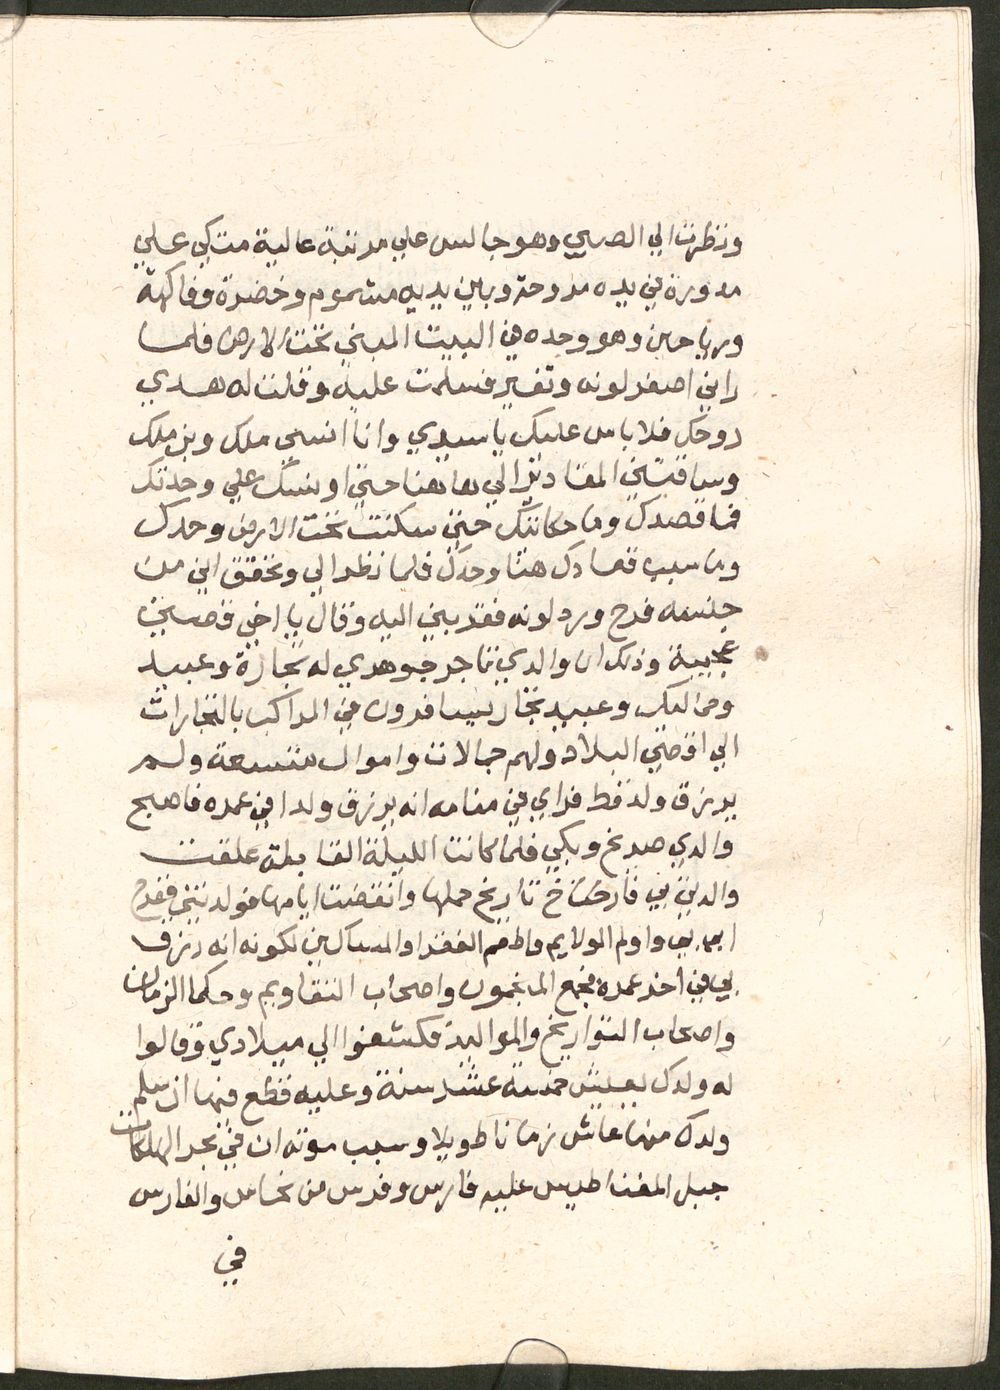 ونظرت الي الصبي وهو جالس علي مرتبة عالية متكي علي
مدورة في يده مروحة وبين يديه مشموم وخضرة وفاكهة
ورياحين وهو وحده في البيت المبني تحت الارض فلما
راني اصفر لونه وتغير فسلمت عليه وقلت له هدي
روحك فلا باس عليك يا سيدي وانا انسي ملك وبن ملك
وساقتني المقادير الي هاهنا حتي اونسك علي وحدتك
فما قصدك وما حكايتك حتي سكنت تحت الارض وحدك
وما سبب قعادك هنا وحدك فلما نظر الي وتحقق اني من
جنسه فرح ورد لونه فقربني اليه وقال يا اخي قصتي
عجيبة وذلك ان والدي تاجر جوهري له تجارة وعبيد
ومماليك وعبيد تجار يسافرون في المراكب بالتجارات
الي اقصي البلاد ولهم جمالات واموال متسعة ولم
يرزق ولد قط فراي في منامه انه يرزق ولدا في عمره فاصبح
والدي صرخ وبكي فلما كانت الليلة القابلة علقت
والدتي بي فارخت تاريخ حملها وانقضت ايامها فولدتني ففرح
ابي بي واولم الولايم واطعم الفقرا والمساكين لكونه انه رزق
بي في اخر عمره فجمع المنجمون واصحاب التقاويم وحكما الزمان
واصحاب التواريخ والمواليد فكشفوا الي ميلادي وقالوا
له ولدك يعيش خمسة عشر سنة وعليه قطع فيها ان سلم
ولدك منها عاش زمانا طويلا وسبب موته ان في بحر الهلكات
جبل المغناطيس عليه فارس وفرس من نحاس والفارس
في